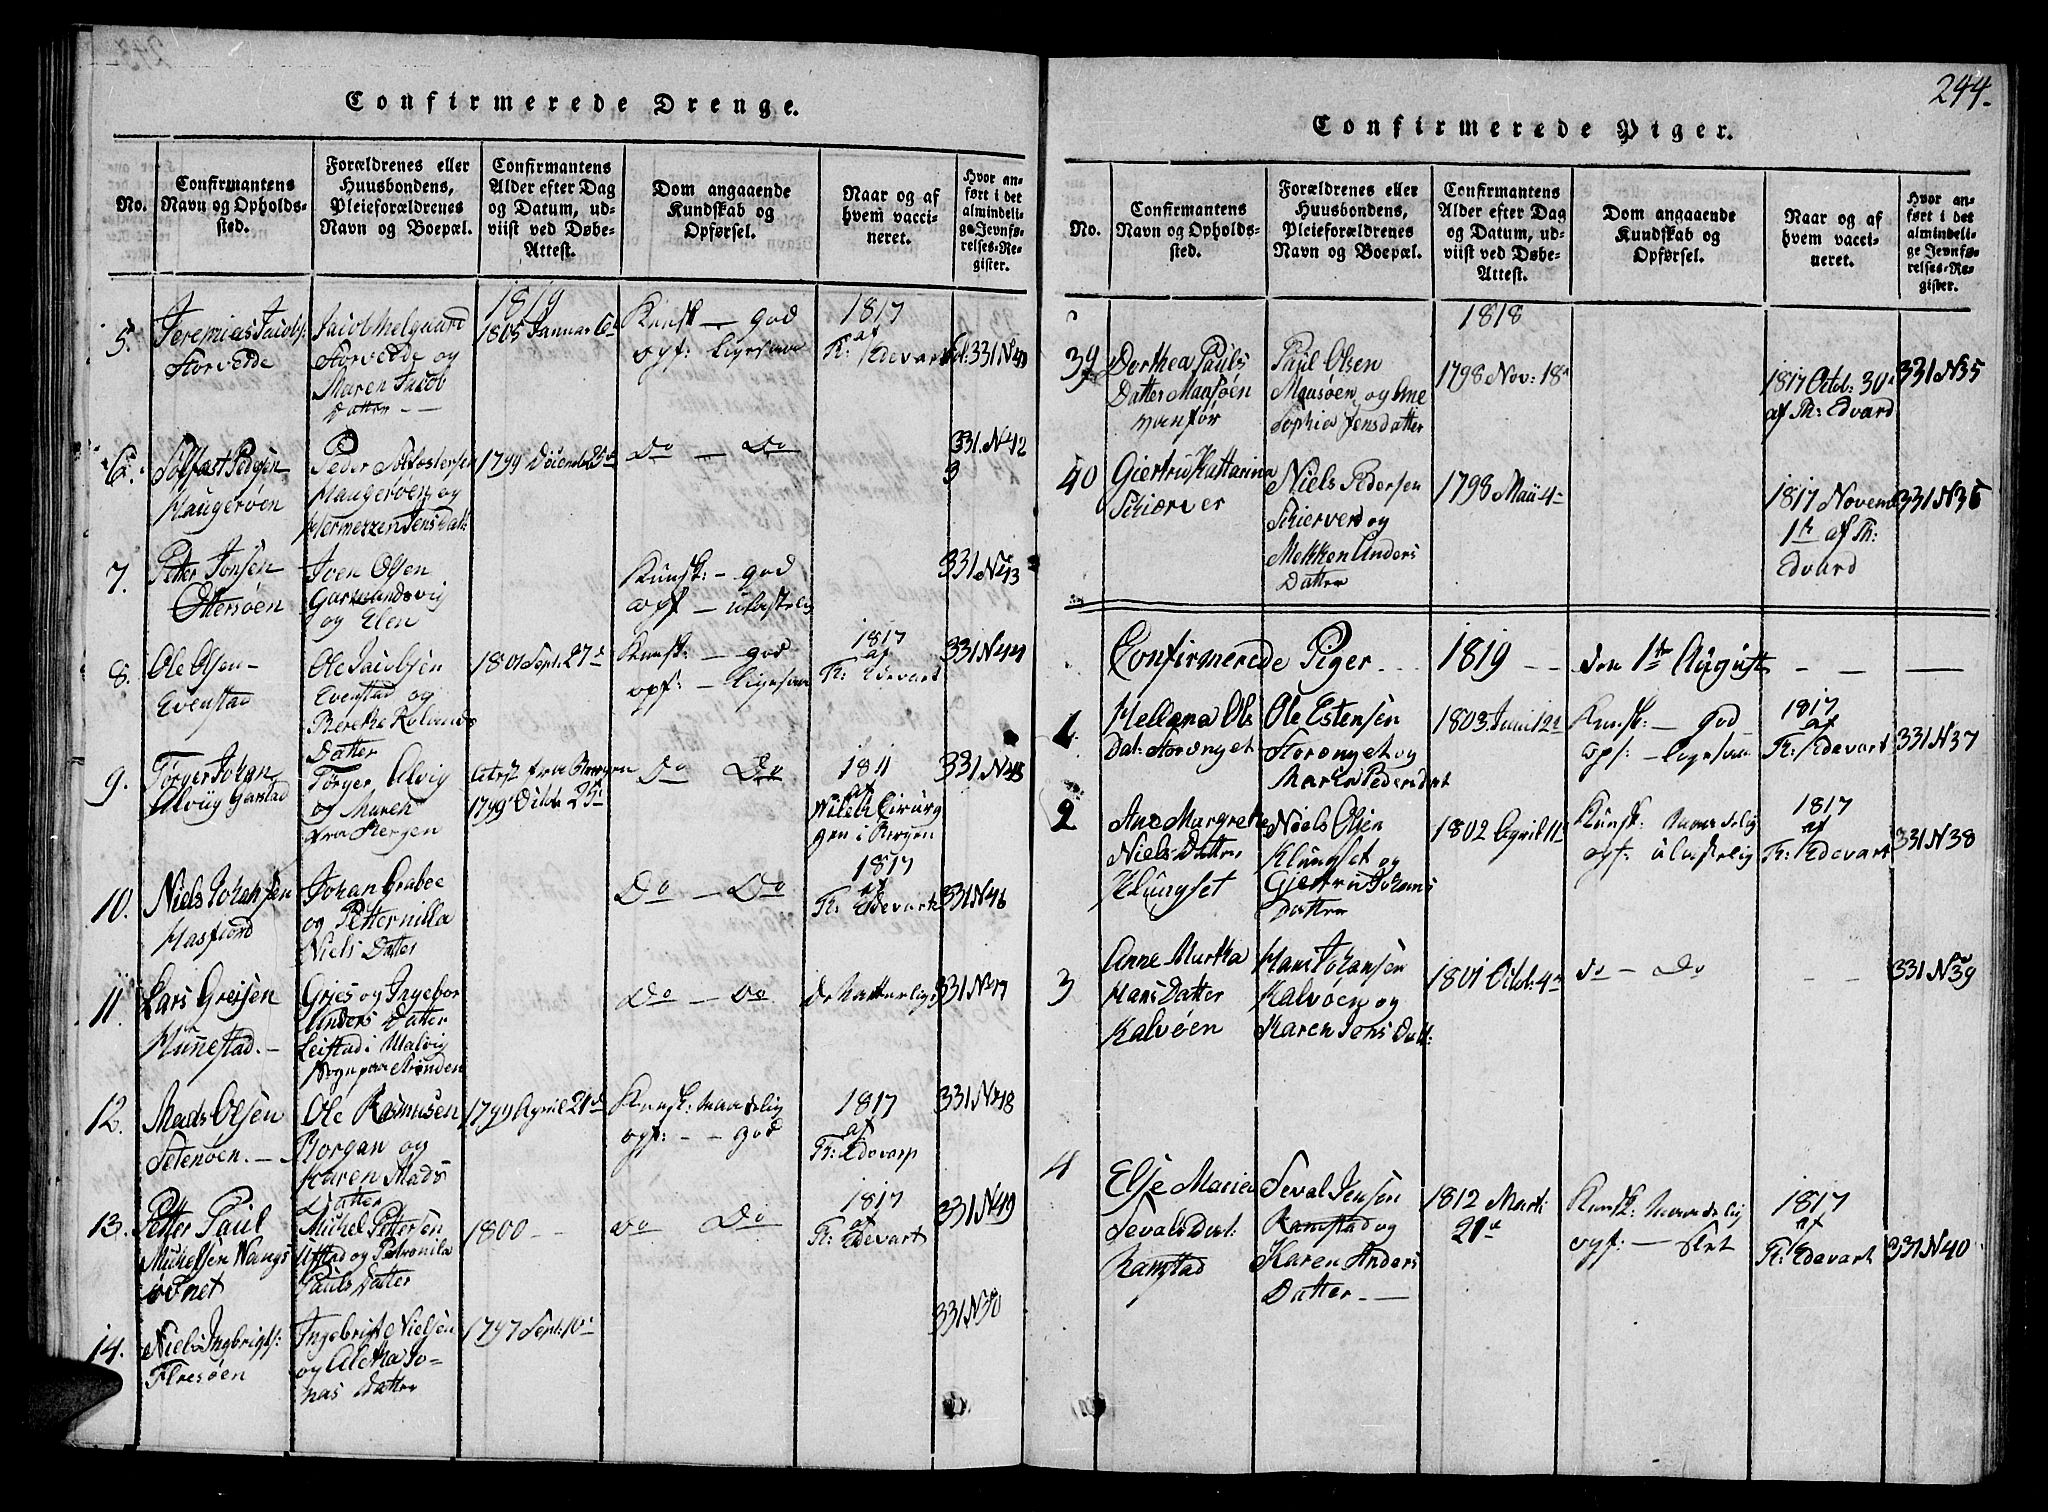 Confirmerede Drenge.
No.
Confirmantens
Navn og Opholds-
sted.
Forældrenes eller
Huusbondens,
Pleieforældrenes
Navn og Boepæl.
Confirmantens
Alder efter Dag
og Datum, ud-
viist ved Døbe-
Attest.
Dom angaaende
Kundskab og
Opførsel.
Naar og af
hvem vacci-
neret.
Hvor an-
ført i det
almindeli-
ge Jevnfø-
relses-Re-
gister.
1819
5.
Jeremias Jacobs:
Storvede
Jacob Melgaard
Storvede og
Maren Jacob
Datter - -
1805 Januar 6
Kunsk - god
opf:
1817
af
Th: Edevart
331 N 40
6.
Pedersen
Haugerøen
Peder
Haugerøen og
Jens Dat:
1799
Do - Do
331. N 42
7.
Petter Jonsen
Ottersøen
Joen Olsen
Garmandsvig
og Elen
Kunsk: - god
opf - ulastelig
331 N 43
8.
Ole Olsen -
Evenstad
Ole Jacobsen
Evenstad og
Berethe Rolands
Datter
1801 Sept: 27
Kunsk: - god
opf: -
1817
af
Th: Edevart
331 N 44
9.
Tørger Johan
Alvig Garstad
Tørger Alvig
og Maren
fra Bergen
Attest fra Bergen
1799
Do Do
1811
af
gen i Bergen
331 N 45
10.
Niels Johansen
Hasfiord
Johan Grabee
og Petternilla
Niels Datter
Do - Do
1817
af
Th: Edevart
331 N 46
11.
Lars Greisen
Hunestad. -
Gries og Ingebor
Anders Datter
Leistad i Malvig
Sogn paa Strinden
Do - Do
de Natterlige
331 N 47
12.
Mads Olsen
Setenøen. -
Ole Rasmusen
Borgan og
Karen Mads
Datter
1799 April 21
Kunsk: maadelig
opf: - - god
1817
af
Th: Edevart
331 N 48
13.
Petter Paul
Michelsen Wangs
øevnet
Michel Pettersen
Ufstad og Petronila
Pauls Datter
1800 - -
Do Do
1817
af
Th: Edevart
331 N 49
14.
Niels Ingbrigts:
Flresøen
Ingebrigt Nielsen
og Aletha Jo-
nas Datter
1797 Sept: 10
331 N 50
244-
Confirmerede Piger.
No.
Confirmantens
Navn og Opholds-
sted.
Forældrenes eller
Huusbondens,
Pleieforældrenes
Navn og Boepæl.
Confirmantens
Alder efter Dag
og Datum, ud-
viist ved Døbe-
Attest.
Dom angaaende
Kundskab og
Opførsel.
Naar og af
hvem vacci-
neret.
Hvor an-
ført i det
almindeli-
ge Jevnfø-
relses-Re-
gister.
1818
39
Dorthea Pauls
Datter Mausøen
Paul Olsen
Mausøen og Ane
Sophia Jensdatter
1798 Nov: 18
1817 Octob: 30
af Th: Edvard
331 N 35
40
Giertru Kattarina
Schierver
Niels Pedersen
Schierver og
Mekken Anders
Datter
1798 Maii 4
1817 Novemb
1 af Th:
Edvard
331 N 36
Confirmerede Piger - -
1819 - -
den 1te Auguste
- - -
1
Hellena Ols
Dat: Storønget
Ole Estensen
Storønget og
Maren Pedersdat
1803 Juni 12
Kunsk: - god
opf: -
1817
af
Th: Edevart
331 N 37
2
Ane Margrethe
Niels Datter
Klungset
Niels Olsen
Klungset og
Gjertru Johans
Datter
1802 April 11
Kunsk: maadelig
opf: ulastelig
1817
af
Th: Edevart
331 N 38
3
Anne Martha
Hans Datter
Kalvøen
Hans Johansen
Kalvøen og
Karen Jons Datt:
1801 Octob: 4
do - Do
- -
331 N 39
4
Else Marie
Sevals Dat:
Ramstad
Seval Jensen
Ramstad og
Karen Anders
Datter - -
1812 Marti
21
Kunsk: maadelig
opf: - slet
1817
af
Th: Edevart
331 N 40